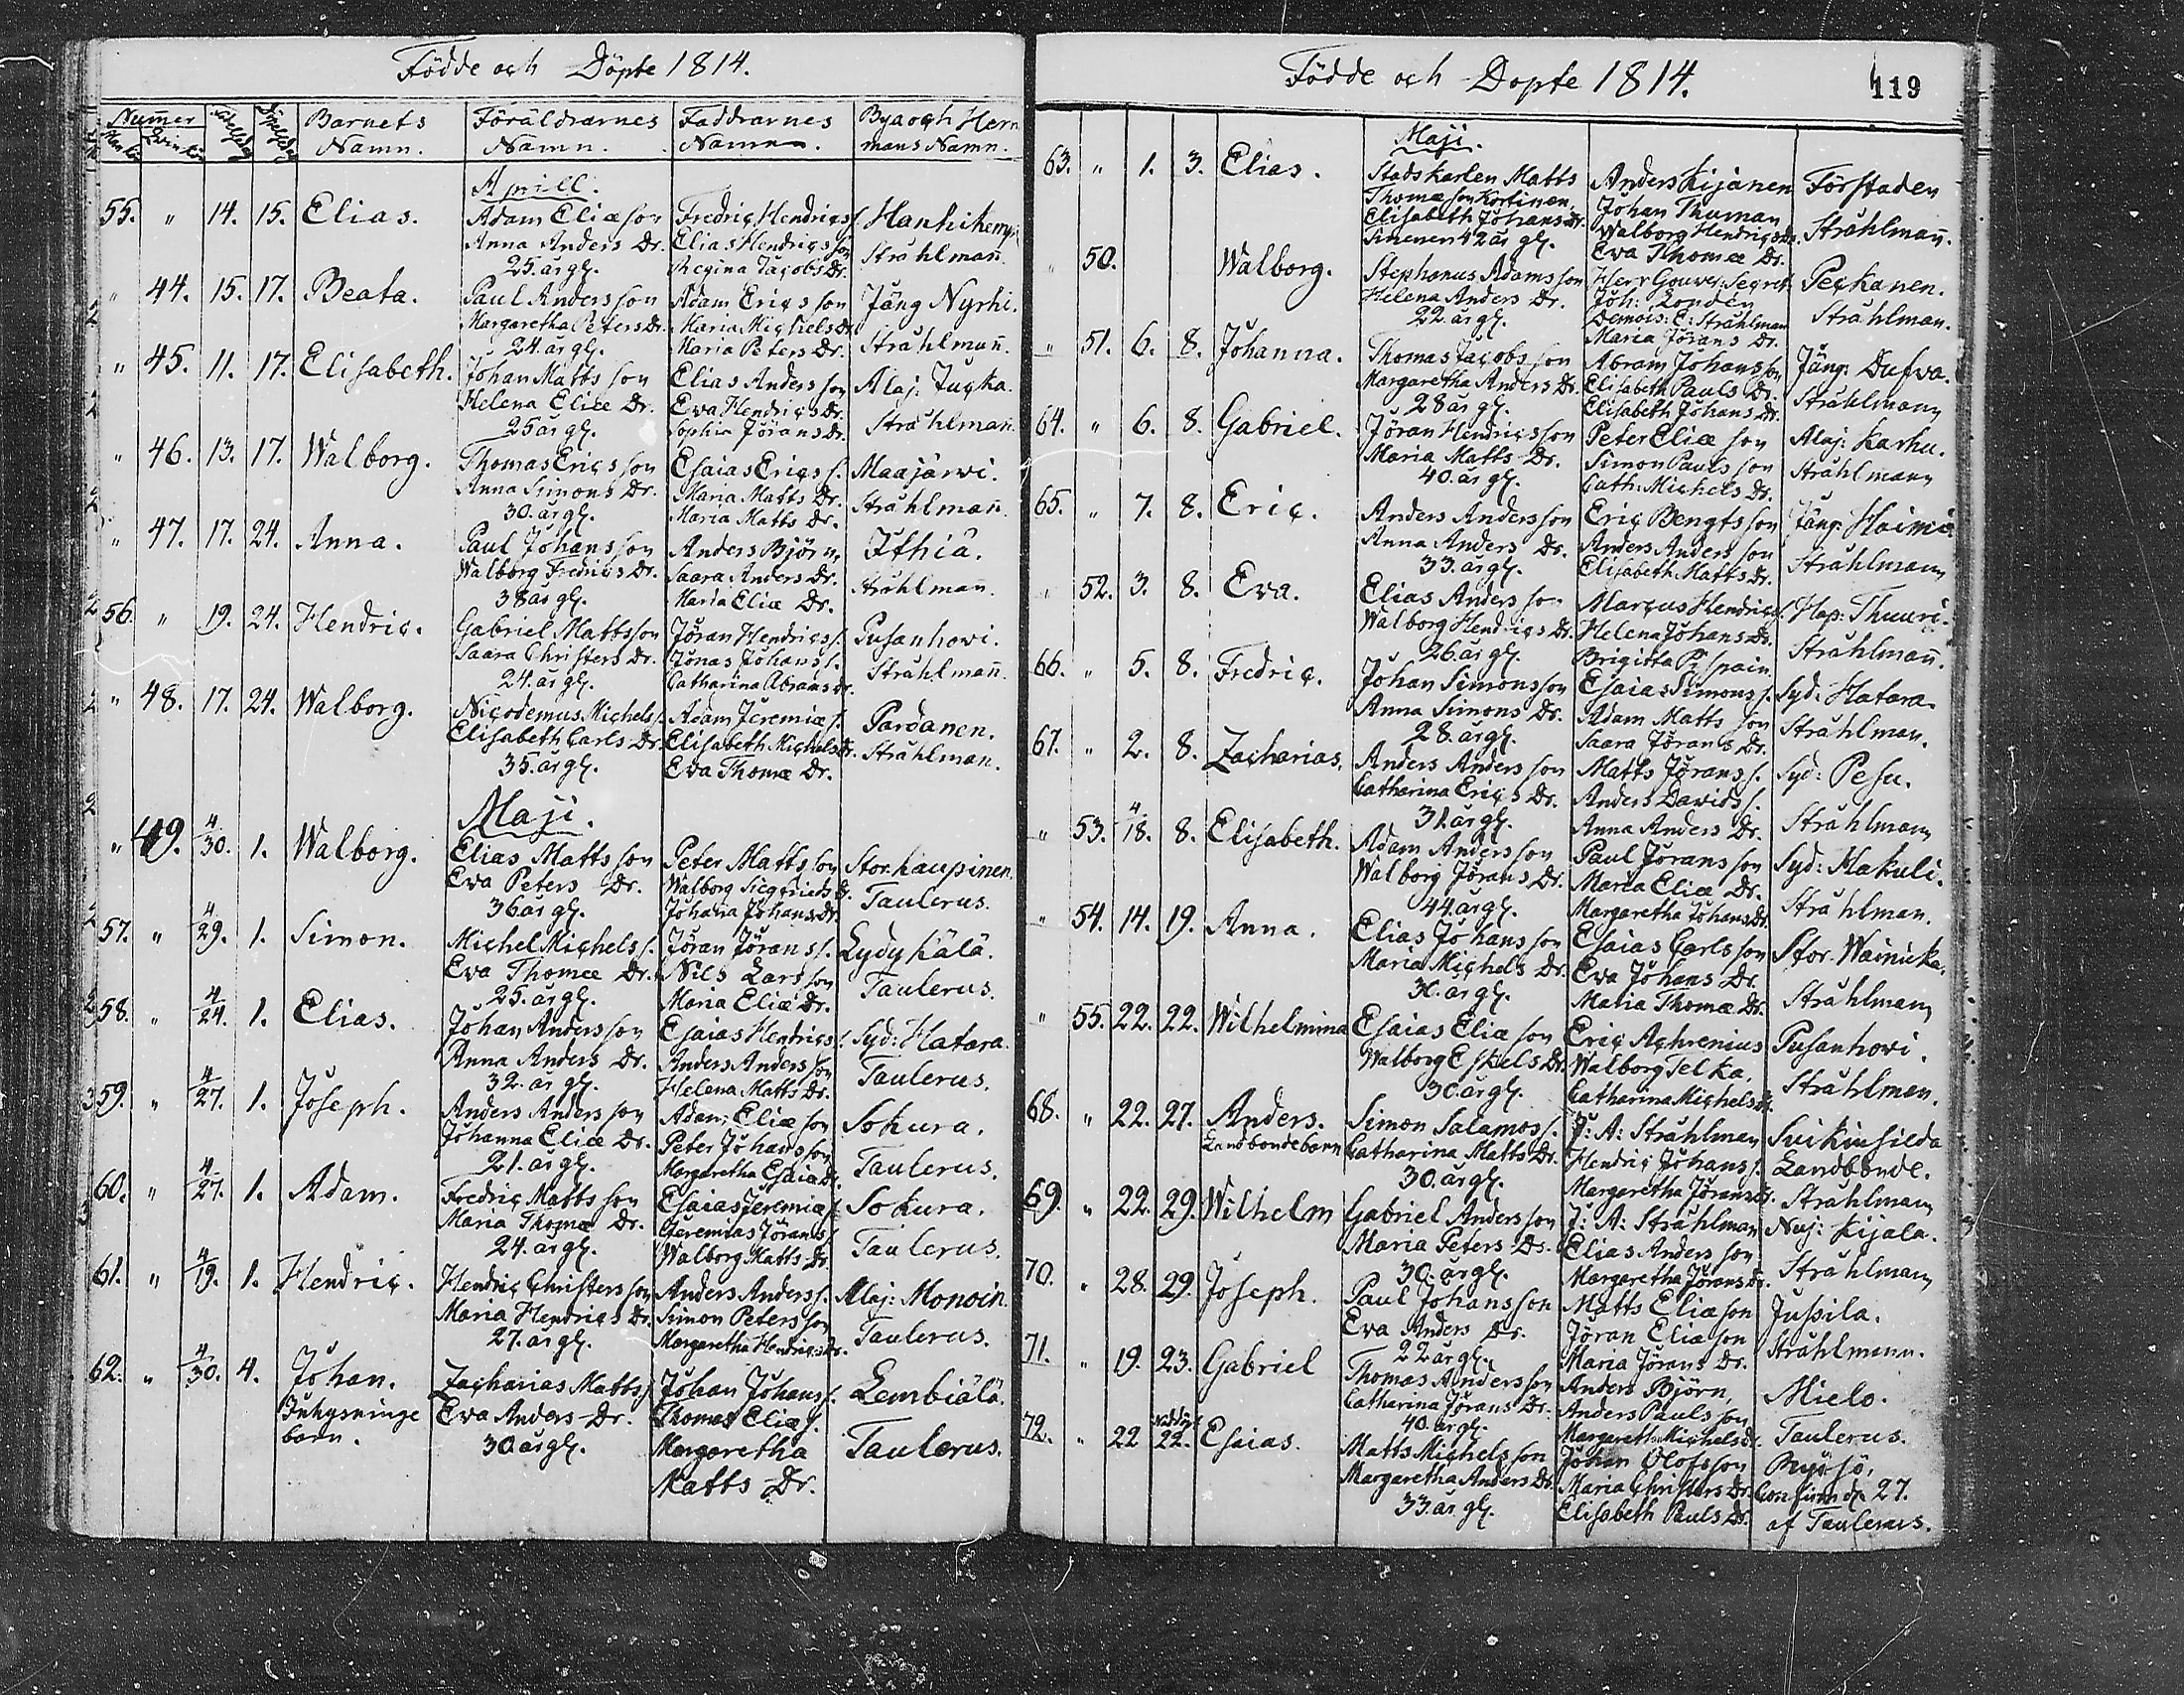 Födde och Döpte 1814.
Numer
Barnets Namn.
Föräldrarnes Namn.
Faddrarnes Namn.
By och Hermans Namn.
Aprill.
55. " 14. 15. Elias. Adam Eliæson Fredric Hendrics s. Hanhikemp
Anna Anders Dr. Elias Hendrics son Stråhlman̄
25. år gl. Regina Jacobs Dr.
" 44. 15. 17. Beata. Paul Andersson Adam Erics son Jäng Nyrhi.
Margaretha Peters Dr. Maria Michels Dr. Stråhlman̄.
24. år gl. Maria Peters Dr.
" 45. 11. 17. Elisabeth. Johan Matts son Elias Anders son Alaj: Jucka.
Helena Eliæ Dr. Eva Hendrics Dr. Stråhlman̄
25 år gl. Sophia Jörans Dr.
" 46. 13. 17. Walborg. Thomas Erics son Esaias Erics s. Maajärwi.
Anna Simons Dr. Maria Matts Dr. Stråhlman̄.
30. år gl. Maria Matts Dr.
" 47. 17. 24. Anna. Paul Johans son Anders Björn,
Walborg Fredrics Dr. Saara Anders Dr. Stråhlman̄.
38 år gl. Maria Eliæ Dr.
56. " 19. 24. Hendric. Gabriel Mattsson Jöran Hendrics s. Pusanhovi.
Saara Christers Dr. Jonas Johans s. Stråhlman̄.
24. år gl. Catharina Abrams Dr.
" 48. 17. 24. Walborg. Nicodemus Michels s. Adam Jeremiæ s. Pardanen.
Elisabeth Carls Dr. Elisabeth Michels Dr. Stråhlman.
35. år gl. Eva Thomæ Dr.
Maji.
" 49. 4/30. 1. Walborg. Elias Matts son Peter Matts son Stor. kaupinen.
Eva Peters Dr. Walborg Siegfrieds Dr. Taulerus.
36 år gl. Johana Johans Dr.
57. " 4/29. 1. Simon. Michel Michels s. Jöran Jörans s. Lydykälä.
Eva Thomæ Dr. Nils Larsson Taulerus.
25. år gl. Maria Eliæ Dr.
58. " 4/24. 1. Elias. Johan Anders son Esaias Hendrics s. Syd: Hatara.
Anna Anders Dr. Anders Anders son Taulerus.
32. år gl. Helena Matts Dr.
59. " 4/27. 1. Joseph. Anders Anders son Adam Eliæ son Sokura.
Johanna Eliæ Dr. Peter Johans son Taulerus.
21. år gl. Margaretha Esaiæ Dr.
60. " 4/27. 1. Adam. Fredric Matts son Esaias Jeremiæ s. Sokura.
Maria Thomæ Dr. Jeremias Jörans s. Taulerus.
24. år gl. Walborg Matts Dr.
61. " 4/19. 1. Hendric. Hendric Christers son Anders Anders s. Alaj: Monoin.
Maria Hendrics Dr. Simon Peters son Taulerus.
27. år gl. Margaretha Hendrics Dr.
62. " 4/30. 4. Johan. Zacharias Matts s. Johan Johans s. Lembiälä.
Inhysninge Eva Anders Dr. Thomas Eliæ s. Taulerus.
barn. 30 år gl. Margaretha
Matts Dr.
Födde och Dopte 1814.
119
Maji.
63. " 1. 3. Elias. Stadskarlen Matts Anders Kijanen Förstaden
Thomæson Kortinen, Johan Thuman Stråhlman̄.
Elisabeth Johans Dr. Walborg Hendrics Dr.
42 år gl. Eva Thomæ Dr.
" 50. Walborg. Stephanus Adams son Herr Gouver: Secret: Peckanen.
Helena Anders Dr. Joh: Londén Stråhlman.
22. år gl. Demois: C: Stråhlman
Maria Jörans Dr.
" 51. 6. 8. Johanna. Thomas Jacobs son Abram Johans son Jäng: Dufva.
Margaretha Anders Dr. Elisabeth Pauls Dr. Stråhlman
28 år gl. Elisabeth Johans Dr.
64. " 6. 8. Gabriel. Jöran Hendrics son Peter Eliæ son Alaj: Karhu.
Maria Matts Dr. Simon Pauls son Stråhlman
40. år gl. Cath: Michels Dr.
65. " 7. 8. Eric. Anders Andersson Eric Bengts son Jäng:
Anna Anders Dr. Anders Anders son Stråhlman
33. år gl. Elisabeth Matts Dr.
" 52. 3. 8. Eva. Elias Anders so Marcus Hendrics s. Hap: Thuuri.
Walborg Hendrics Dr. Helena Johans Dr. Stråhlman̄.
26. år gl. Brigitta
66. " 5. 8. Fredric. Johan Simonsson Esaias Simons s. Syd: Hatara.
Anna Simons Dr. Adam Matts son Stråhlman.
28. år gl. Saara Jörans Dr.
67. " 2. 8. Zacharias. Anders Anders son Matts Jörans s. Syd: Pesu.
Catharina Erics Dr. Anders Davids s. Stråhlman
31. år gl. Anna Anders Dr.
" 53. 4/18. 8. Elisabeth. Adam Andersson Paul Jörans son Syd: Hakuli.
Walborg Jörans Dr. Maria Eliæ Dr. Stråhlman.
44. år gl. Margaretha Johans Dr.
" 54. 14. 19. Anna. Elias Johans son Esaias Carls son Stor. Wainicka.
Maria Michels Dr. Eva Johans Dr. Stråhlman
år gl. Maria Thomæ Dr.
" 55. 22. 22. Wilhelmina Esaias Eliæ son Eric Achrenius Pusanhovi.
Walborg Eskels Dr. Walborg Telka. Stråhlman.
30 år gl. Catharina Michels Dr.
68. " 22. 27. Anders. Simon Salamos s. J: A: Stråhlman Suikinsilda
Landbondebarn Catharina Matts Dr. Hendric Johans s. Landbonde.
30. år gl. Margaretha Jörans Dr. Stråhlman
69. " 22. 29. Wilhelm Gabriel Anders son J: A: Stråhlman Nuj: Kijala.
Maria Peters Dr. Elias Anders son Stråhlman
30. år gl. Margaretha Jörans Dr.
70. " 28. 29. Joseph. Paul Johansson Matts Eliæson Jussila.
Eva Anders Dr. Jöran Eliæson Stråhlmann.
22 år gl. Maria Jörans Dr.
71. " 19. 23. Gabriel Thomas Andersson Anders Björn, Mielo.
Catharina Jörans Dr. Anders Pauls son Taulerus.
40. år gl. Margaretha Michels Dr.
72. " 22 Nöddöpt 22. Esaias. Matts Michels son Johan Olofsson
Margaretha Anders Dr. Maria Christers Dr. Confirm d. 27.
33. år gl. Elisabeth Pauls Dr. af Taulerus.